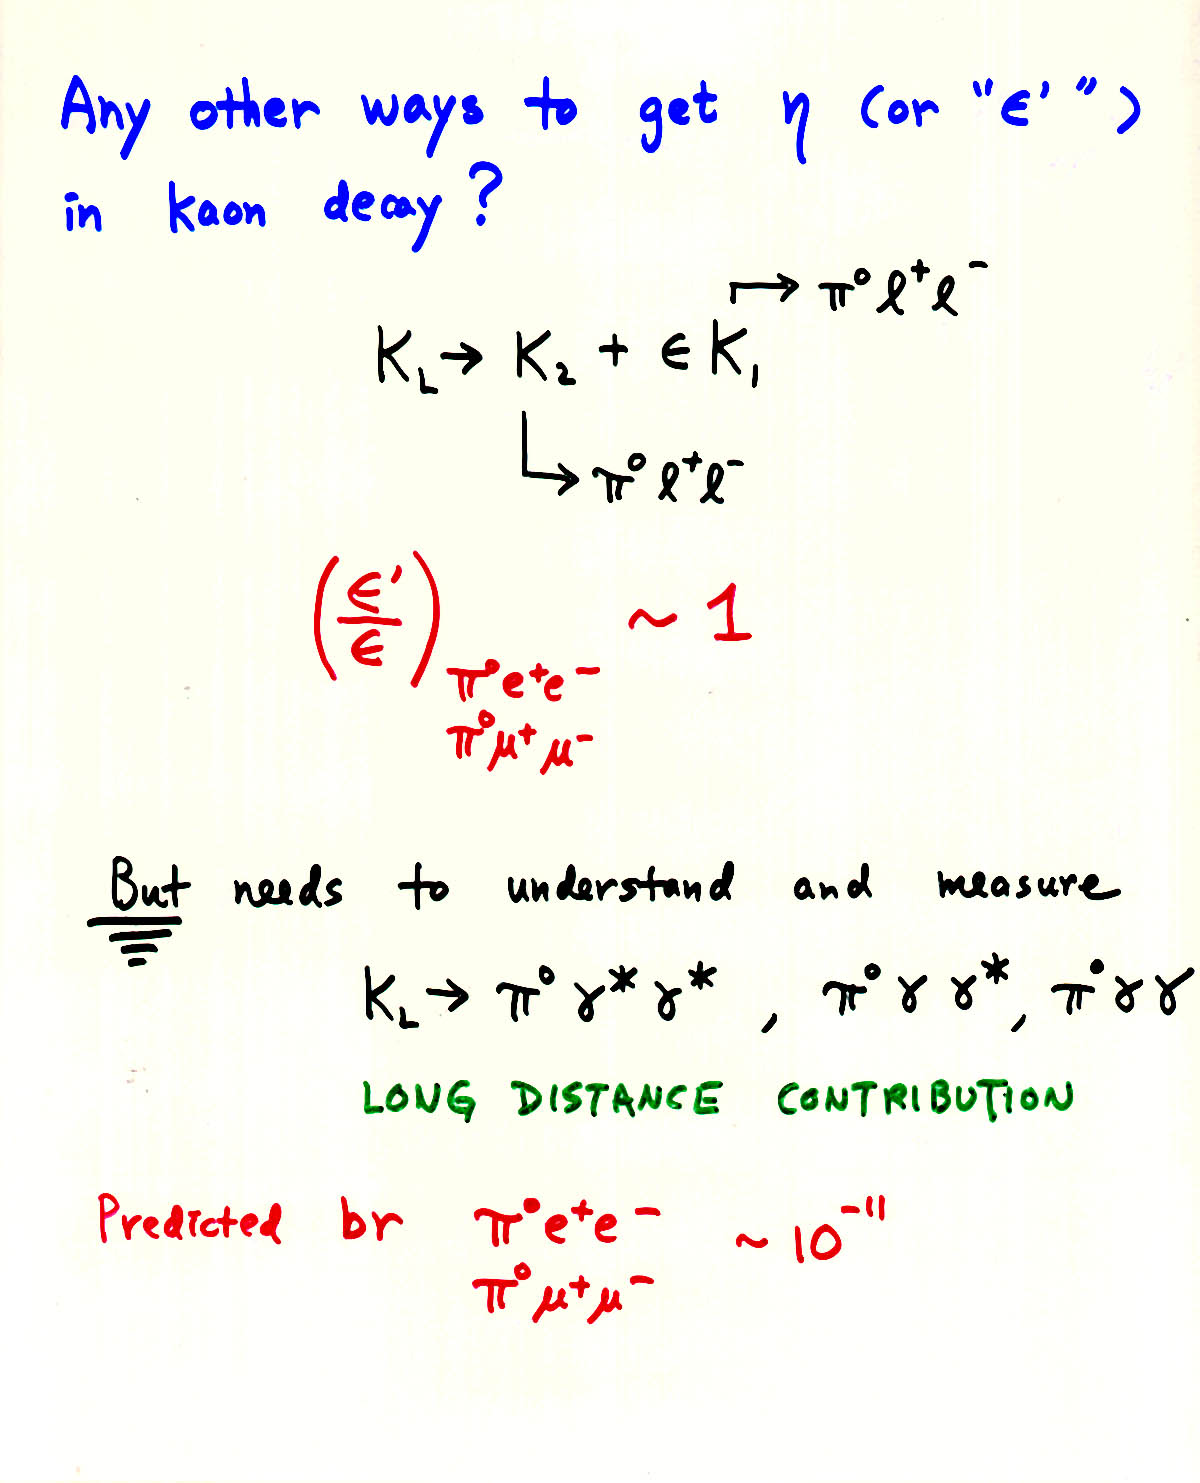 Any other ways to get η (or "ϵ'")
in kaon decay?
→ π⁰ℓ⁺ℓ⁻
K_L → K₂ + ϵ K₁
→ π⁰ℓ⁺ℓ⁻
(ϵ'/ϵ) π⁰e⁺e⁻ ~ 1
π⁰μ⁺μ⁻
But needs to understand and measure
K_L → π⁰γ*γ*, π⁰γγ*, π⁰γγ
LONG DISTANCE CONTRIBUTION
Predicted br π⁰e⁺e⁻ ~ 10⁻¹¹
π⁰μ⁺μ⁻